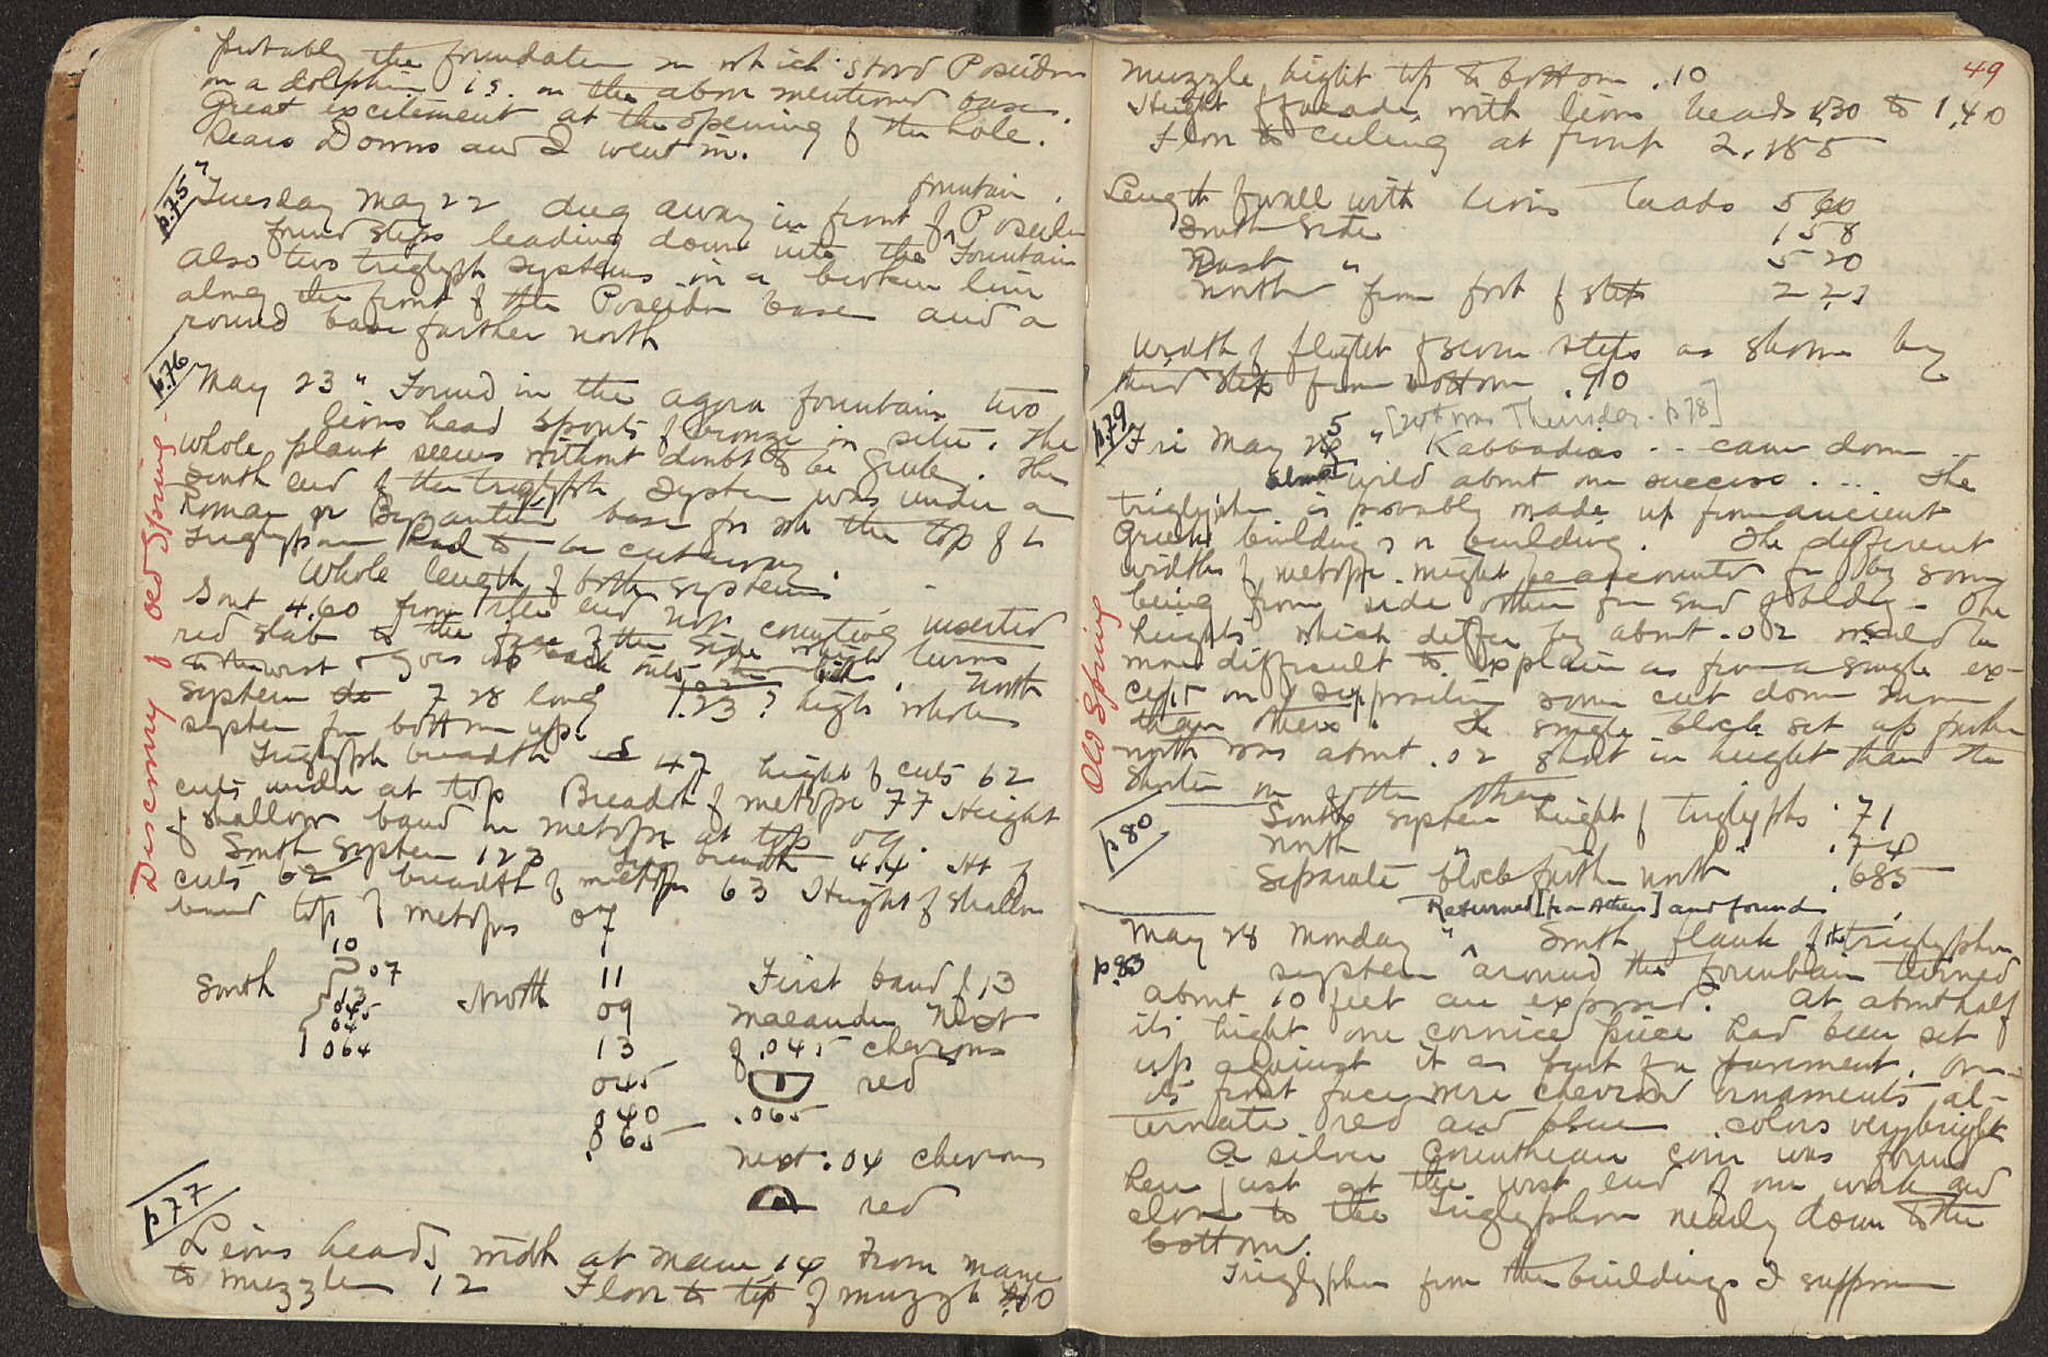 probably the foundation on which stood Poseidon
on a dolphin i.e. on the above mentioned base.
Great excitement at the opening of the hole.
Sears Downs and I went in.
p.75
"Tuesday May 22 dug away in front of Poseidon
fountain.
Found steps leading down into the Fountain
also two triglyph systems in a broken line
along the front of the Poseidon base and a
round base further north
p.76
May 23 " Found in the agora fountain two
lions head spouts of bronze in situ. The
whole plant seems without doubt to be Greek. The
south end of the triglyph system was under a
Roman or Byzantine base for wh the top of
triglyphon had to be cut away.
Whole length of both systems
Sout 4.60 from the end not counting inserted
red slab to the face of the side which turns
to the west & goes back into the bank. North
system 7 28 long 1.23 ? high whole
system from bottom up.
Triglyph breadth 47 hight of cuts 62
cuts under at top Breadth of metope 77 Height
of shallow band on metope at top 09.
South System 123 Trig breadth 44 Ht of
cuts 62 breadth of metope 63 Height of shallow
band top of metopes 07
South 10
07
13
045
04
064
North 11
09
13
045
040
.065
First band of 13
maeander Next
of .045 chevrons
red
.065
next .04 chevrons
red
Discovery of Old Spring
p77
Lions heads width at mane 14 From mane
to muzzle 12 Floor to top of muzzle
49
Muzzle hight top to bottom .10
Height of facade with lions heads 1,30 to 1,40
Floor to ceiling at front 2.185
Length of wall with lions heads 5 60
South Side 158
East " 5 20
North " from foot of steps 2 27
Width of flight of seven steps as shown by
third step from bottom .90
p.79
[24th was Thursday. p78]
Fri May 25 " Kabbadias .. came down ..
almost wild about our success. ... The
triglyphon is probably made up from ancient
Greek buildings or building. The different
widths of metope might be accounted for by some
being from side other from end of bldg. The
heights which differ by about .02 would be
more difficult to explain as from a single ex-
cept on supposition some cut down more
than others. The single block set up further
north was about .02 short in height than the
shorter one of the others
Old Spring
p80
South system height of triglyphs .71
North " .74
Separate block further north " .685
Returned [from Athens] and found
May 28 Monday " South flank of the triglyphon
p.83
system around the fountain turned
about 10 feet are exposed. At about half
its hight one cornice piece had been set
up against it as part of a pavement. On
its front face were chevron ornaments al-
ternate red and blue colors very bright
A silver Corinthian coin was found
here just at the west end of our work and
close to the triglyphon nearly down to the
bottom.
Triglyphon from the buildings I suppose